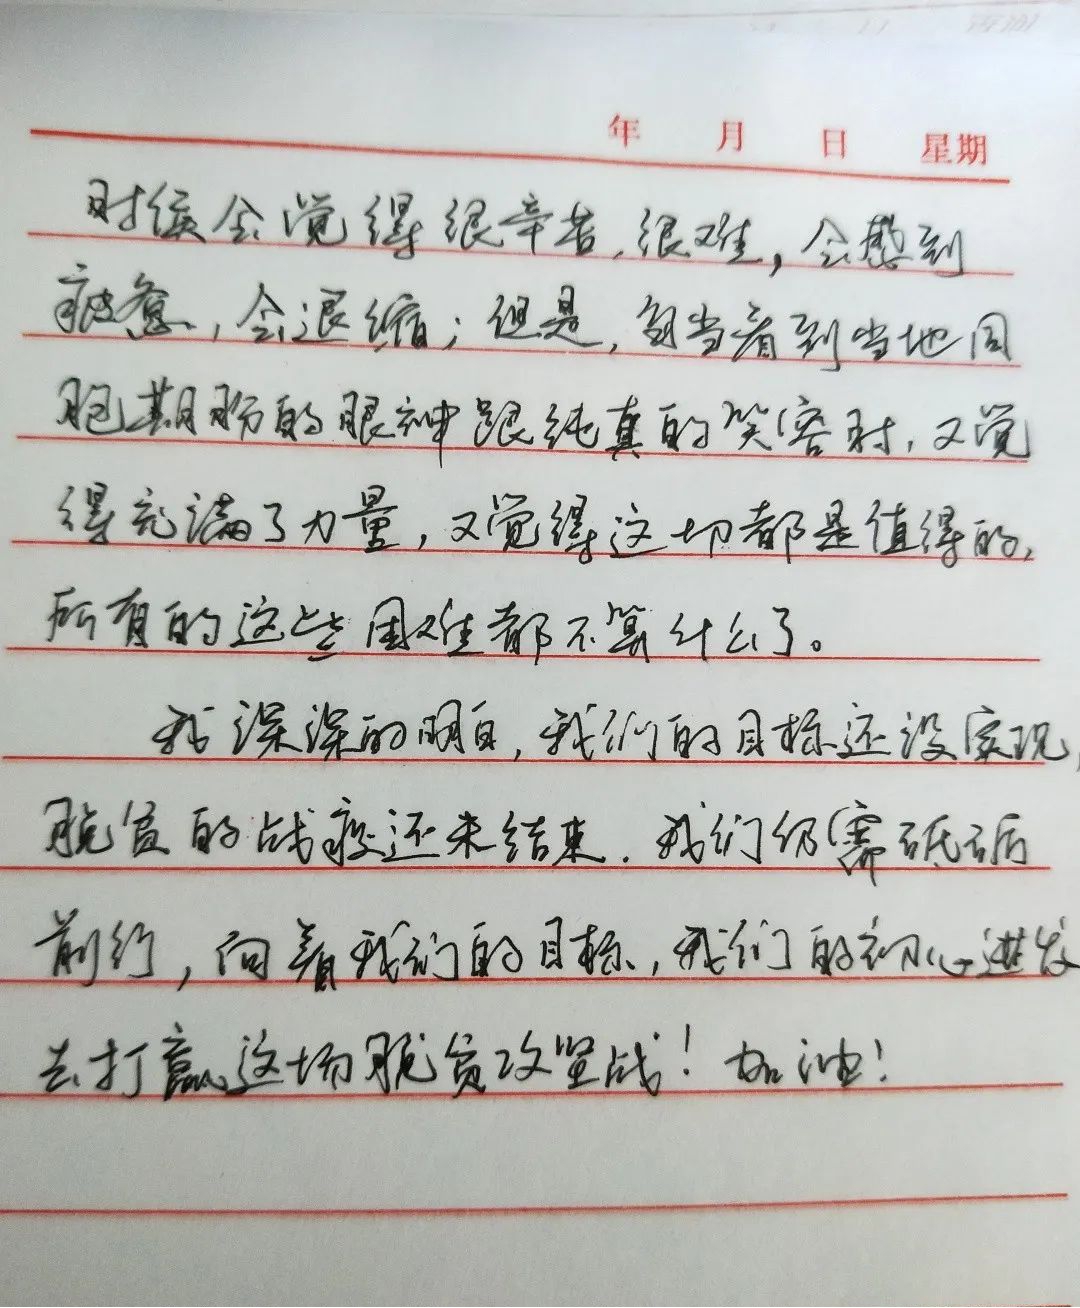 年 月 日 星期
时候会觉得很辛苦,很难,会感到
疲惫,会退缩;但是,每当看到当地同
胞期盼的眼神跟纯真的笑容时,又觉
得充满了力量,又觉得这一切都是值得的,
所有的这些困难都不算什么了。
我深深的明白,我们的目标还没实现,
脱贫的战役还未结束.我们仍需砥砺
前行,向着我们的目标,我们的初心进发
去打赢这场脱贫攻坚战!加油!